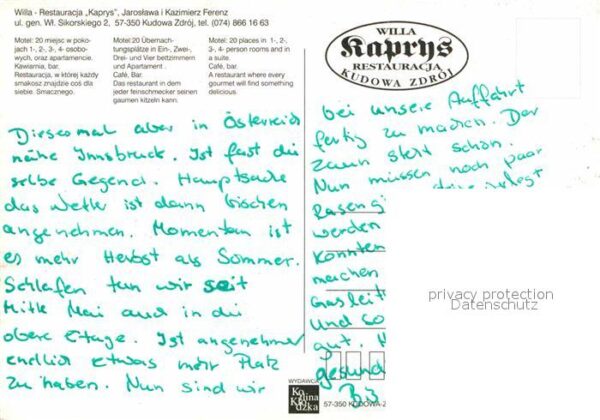 Willa - Restauracja „Kaprys”, Jarosława i Kazimierz Ferenz
ul. gen. Wł. Sikorskiego 2, 57-350 Kudowa Zdrój, tel. (074) 866 16 63
Motel: 20 miejsc w poko-
jach 1-, 2-, 3-, 4- osobo-
wych, oraz apartamencie.
Kawiarnia, bar.
Restauracja, w której każdy
smakosz znajdzie coś dla
siebie. Smacznego.
Motel: 20 Übernach-
tungsplätze in Ein-, Zwei-,
Drei- und Vier beltzimmern
und Apartament.
Café, Bar.
Das restaurant in dem
jeder feinschmecker seinen
gaumen kitzeln kann.
Motel: 20 places in 1-, 2-,
3-, 4- person rooms and in
a suite.
Café, bar.
A restaurant where every
gourmet will find something
delicious.
WILLA
Kaprys
RESTAURACJA
KUDOWA ZDRÓJ
Diesesmal aber in Österreich
nähe Innsbruck. Ist fast die
selbe Gegend. Hauptsache
das Wetter ist dann bischen
angenehmen. Momentan ist
es mehr Herbst als Sommer.
Schlafen tun wir seit
Mitte Mai auch in die
obere Etage. Ist angenehmer
endlich etwas mehr Platz
zu haben. Nun sind wir
bei unsere Auffahrt
fertig zu machen. Der
Zaun steht schon.
Nun müssen noch paar
Raseng
werden
konnten
machen
Gasleit
Und so
gut.
gesund
Bis
privacy protection
Datenschutz
WYDAWCA
57-350 KUDOWA-Z